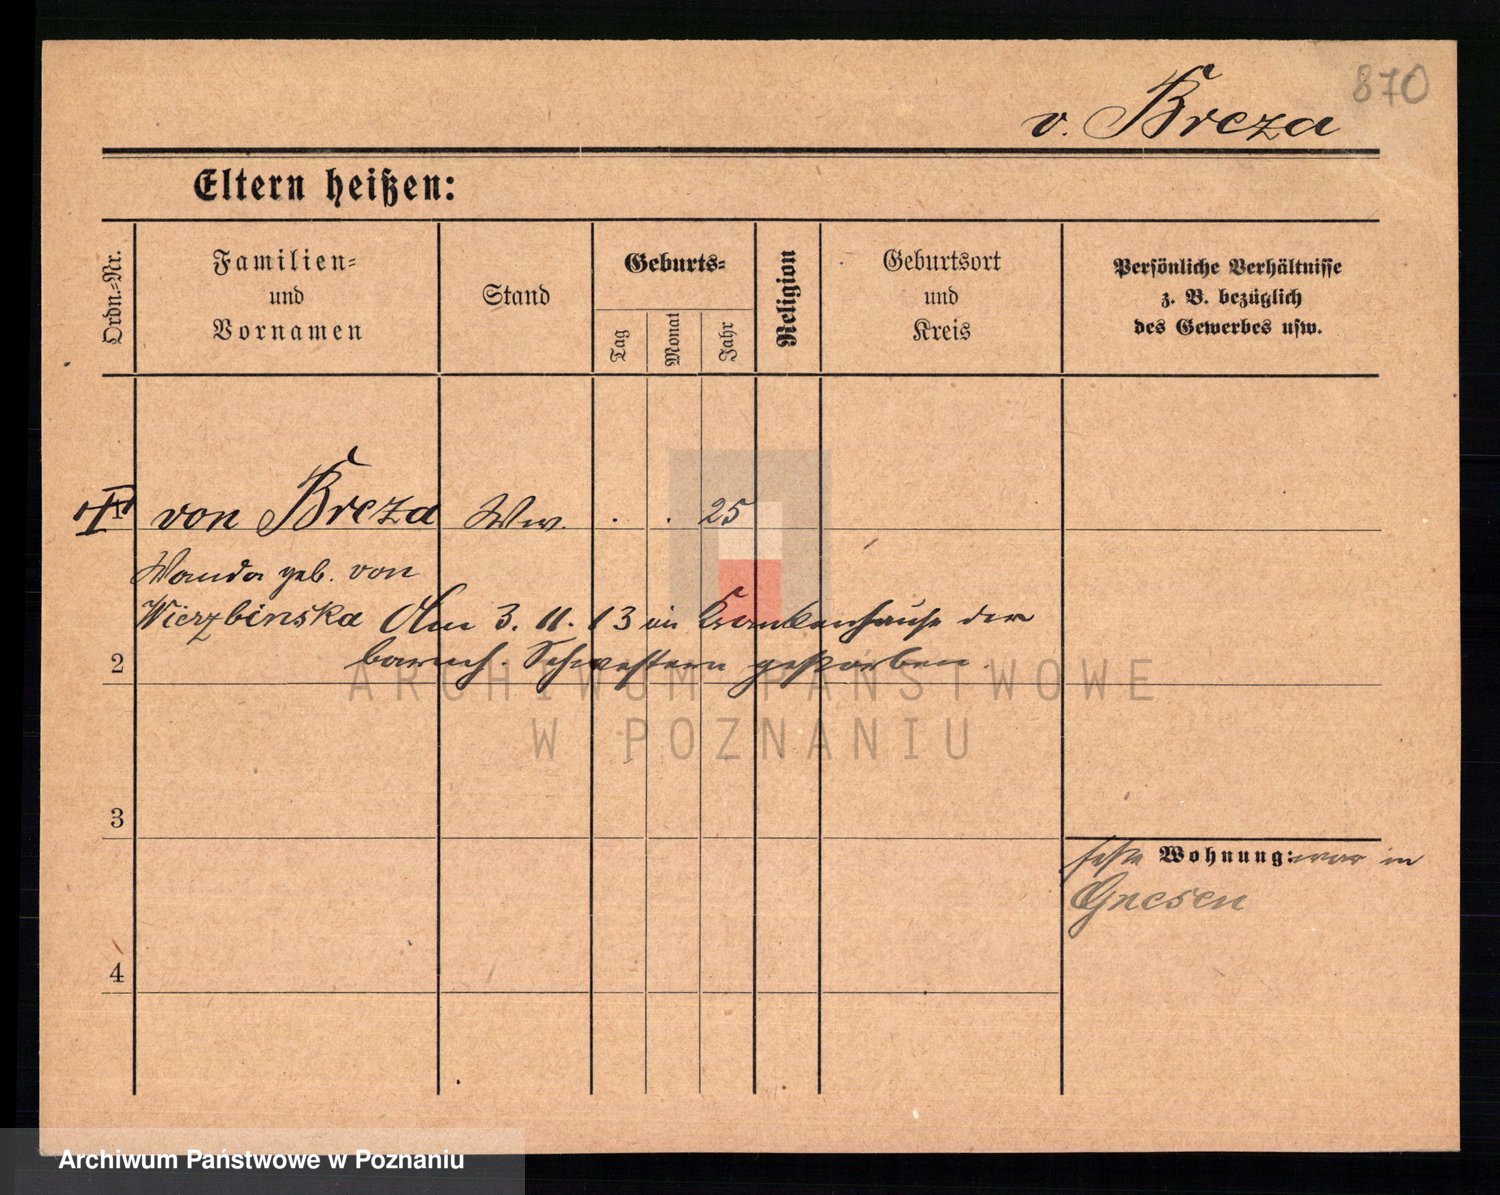 870
v. Breza
Eltern heißen:
Ordn.-Nr.
Familien-
und
Vornamen
Stand
Geburts-
Tag
Monat
Jahr
Religion
Geburtsort
und
Kreis
Persönliche Verhältnisse
z. B. bezüglich
des Gewerbes usw.
1
von Breza Ww. . . 25
Wanda geb. von
Wierzbinska Am 3. 11. 13 im Krankenhause der
barmh. Schwestern gestorben.
2
3
feste Wohnung: war in
Gnesen
4
ARCHIWUM PAŃSTWOWE
W POZNANIU
Archiwum Państwowe w Poznaniu